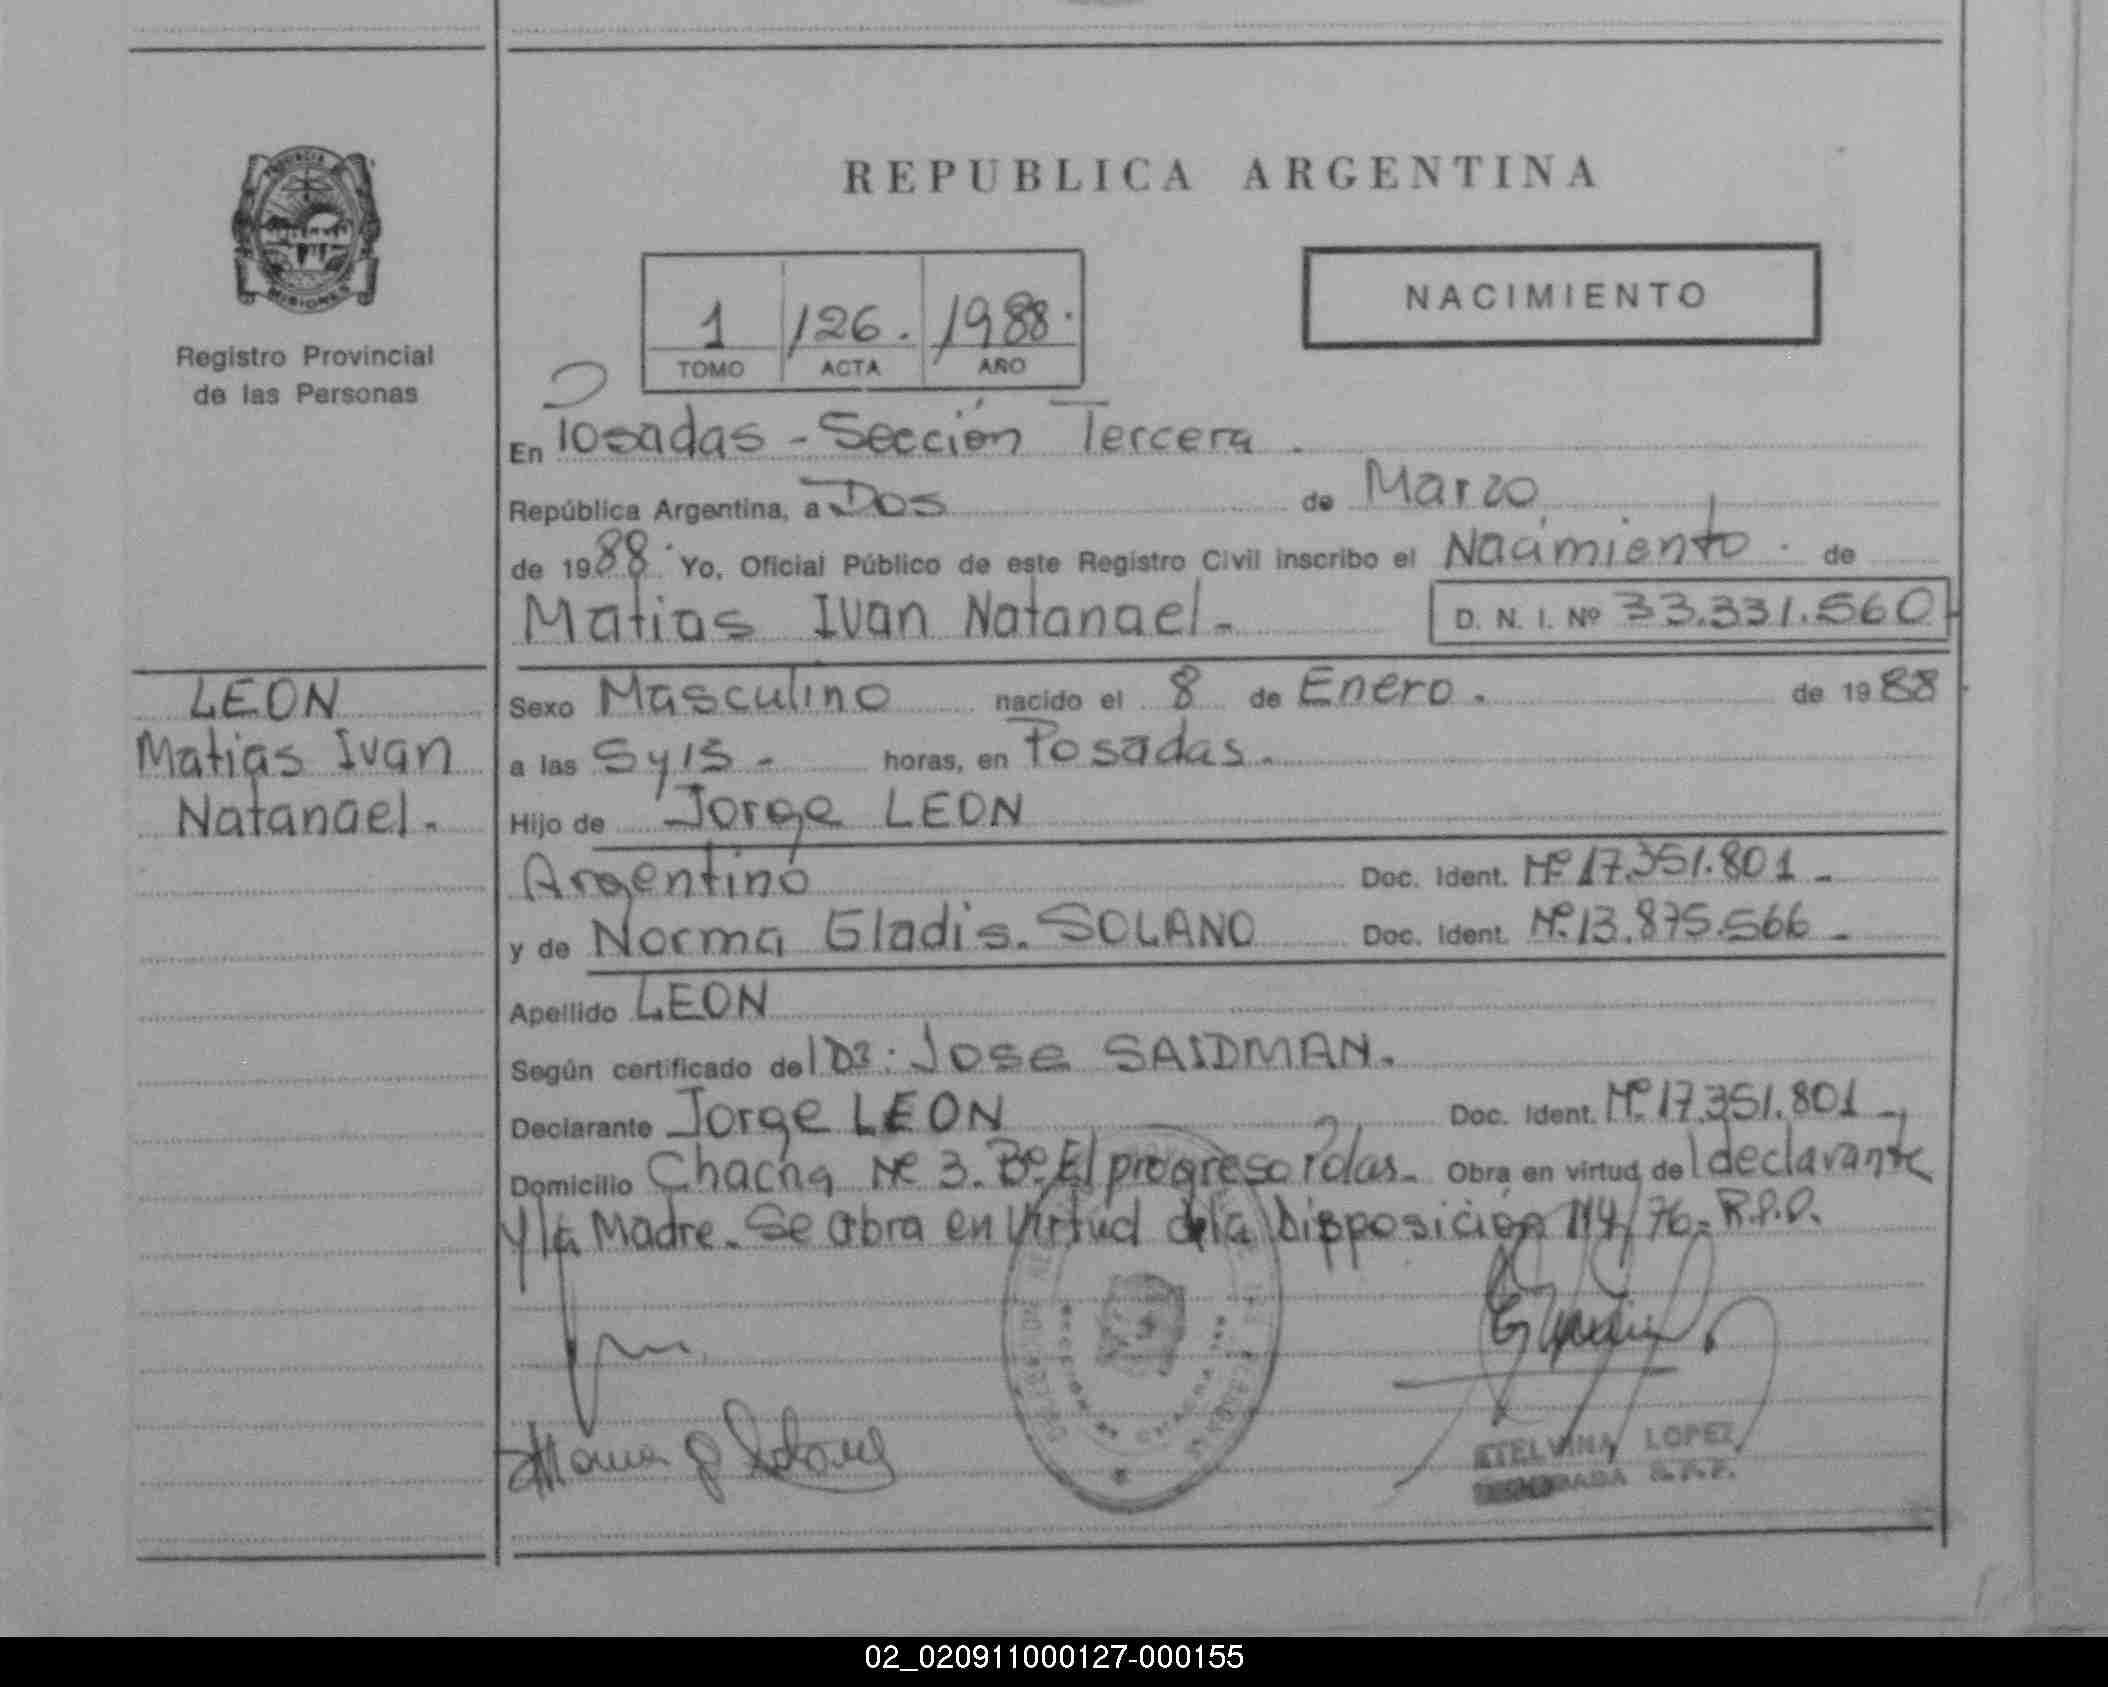 REPUBLICA ARGENTINA
NACIMIENTO
1 126. 1988.
TOMO ACTA AÑO
PROVINCIA
MISIONES
Registro Provincial
de las Personas
En Posadas - Sección Tercera.
República Argentina, a Dos de Marzo
de 1988. Yo, Oficial Público de este Registro Civil inscribo el Nacimiento. de
Matias Ivan Natanael. D. N. I. Nº 33.331.560
LEON
Matias Ivan
Natanael.
Sexo Masculino nacido el 8 de Enero. de 1988
a las 5 y 15 - horas, en Posadas.
Hijo de Jorge LEON
Argentino Doc. Ident. Nº 17.351.801 -
y de Norma Gladis. SOLANO Doc. Ident. Nº 13.875.566 -
Apellido LEON
Según certificado del Dr: Jose SAIDMAN.
Declarante Jorge LEON Doc. Ident. Nº 17.351.801 -
Domicilio Chacra Nº 3. Bº El progreso Pdas. Obra en virtud del declarante
y la Madre. Se obra en virtud de la Disposición 114/76. R.P.P.
ETELVINA LOPEZ
02_020911000127-000155